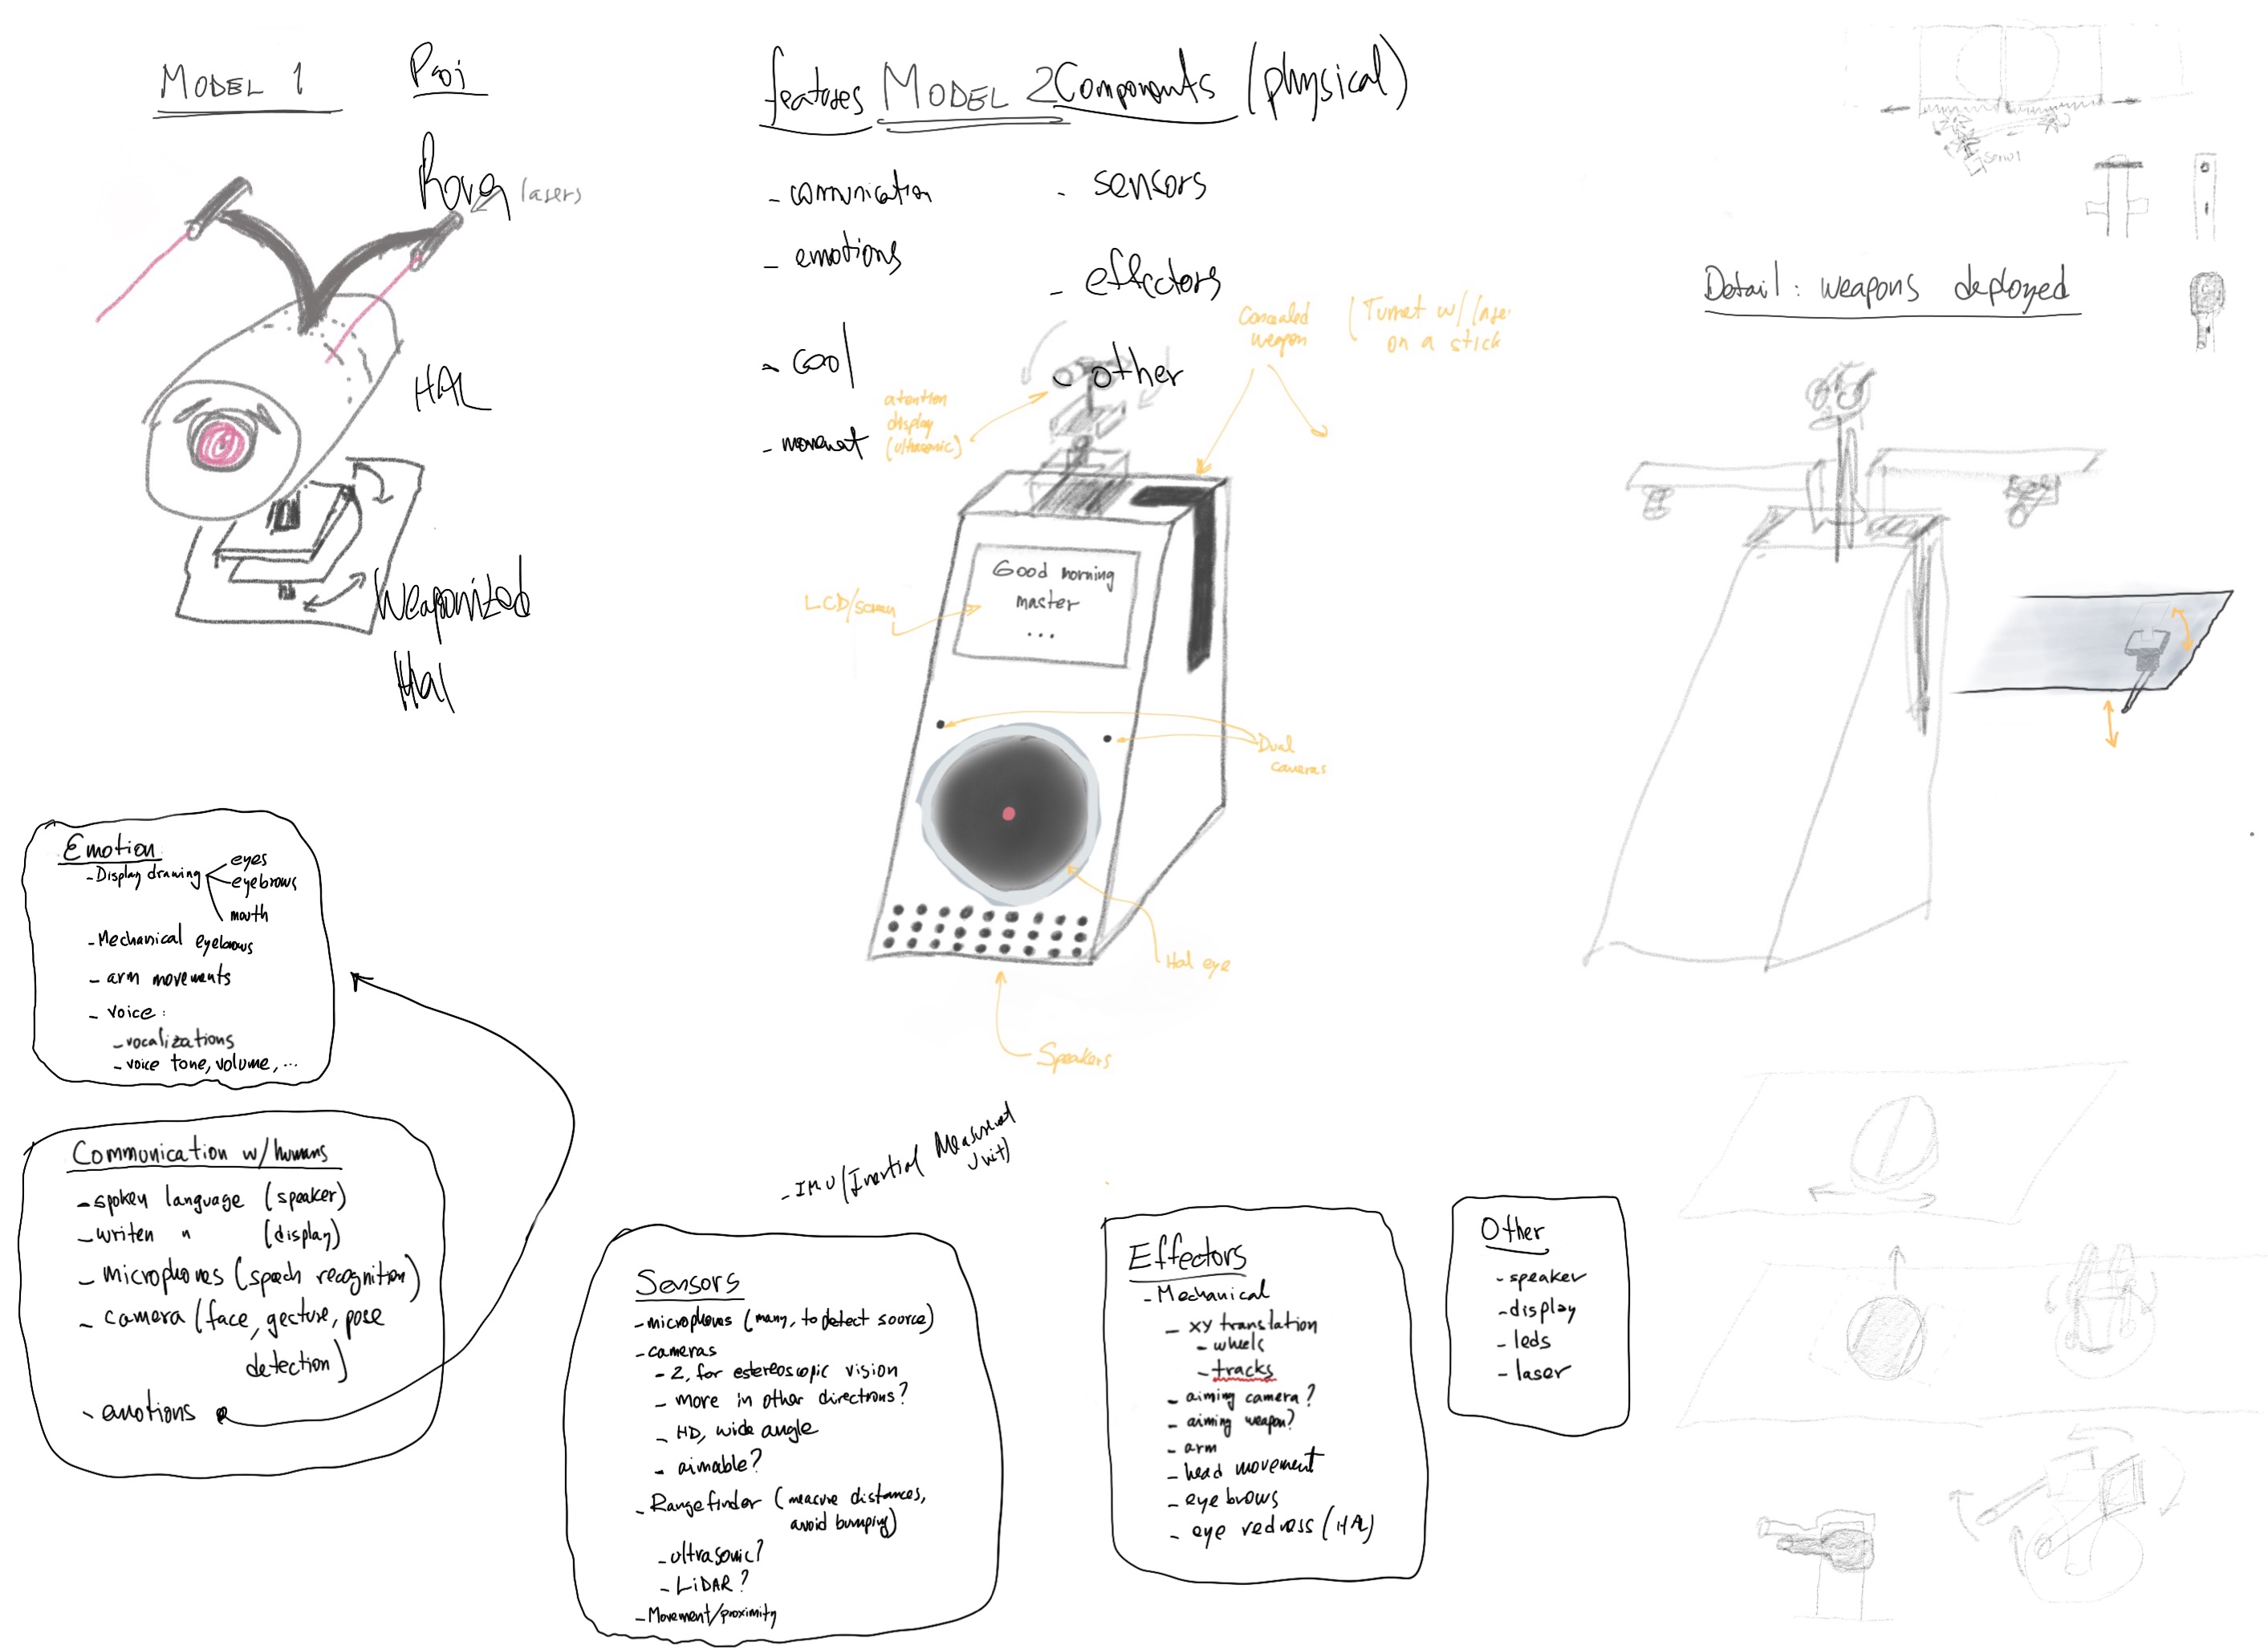 MODEL 1
Rover
lasers
HAL
Weaponized
Hal
features
MODEL 2
Components (physical)
- comunication
- emotions
- cool
- movement
- sensors
- effectors
- other
Concealed
weapon
(Turret w/ laser
on a stick
atention
display
(ultrasonic)
LCD/screen
Good morning
master
...
Dual
cameras
Hal eye
Speakers
servo1
Detail: weapons deployed
Emotion
- Display drawing
eyes
eyebrows
mouth
- Mechanical eyebrows
- arm movements
- voice:
- vocalizations
- voice tone, volume, ...
Communication w/humans
- spoken language (speaker)
- writen " (display)
- microphones (speech recognition)
- camera (face, gecture, pose
detection)
- emotions
- IMU (Inertial Measurement
Unit)
Sensors
- microphones (many, to detect source)
- cameras
- 2, for estereoscopic vision
- more in other directions?
- HD, wide angle
- aimable?
- Rangefinder (measure distances,
avoid bumping)
- ultrasonic?
- LiDAR?
- Movement/proximity
Effectors
- Mechanical
- xy translation
- wheels
- tracks
- aiming camera?
- aiming weapon?
- arm
- head movement
- eyebrows
- eye redness (HAL)
Other
- speaker
- display
- leds
- laser